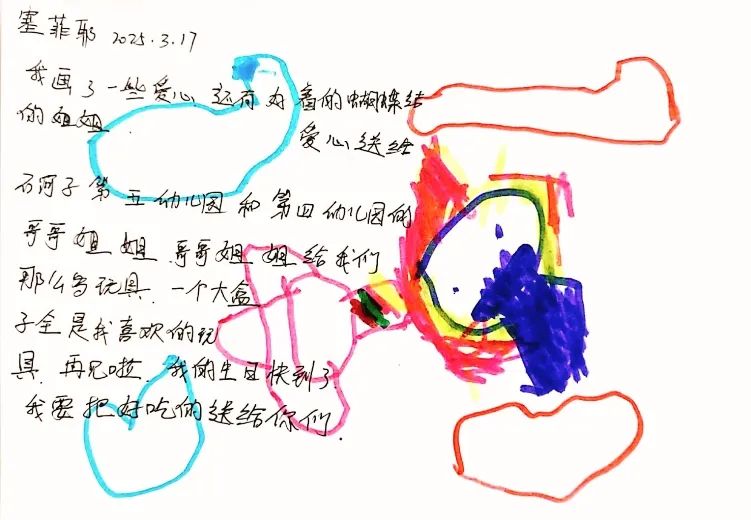 塞菲耶 2025.3.17
我画了一些爱心 还有好看的蝴蝶结
的姐姐 爱心送给
石河子第五幼儿园和第四幼儿园的
哥哥姐姐 哥哥姐姐给我们
那么多玩具 一个大盒
子全是我喜欢的玩
具 再见啦 我的生日快到了
我要把好吃的送给你们.